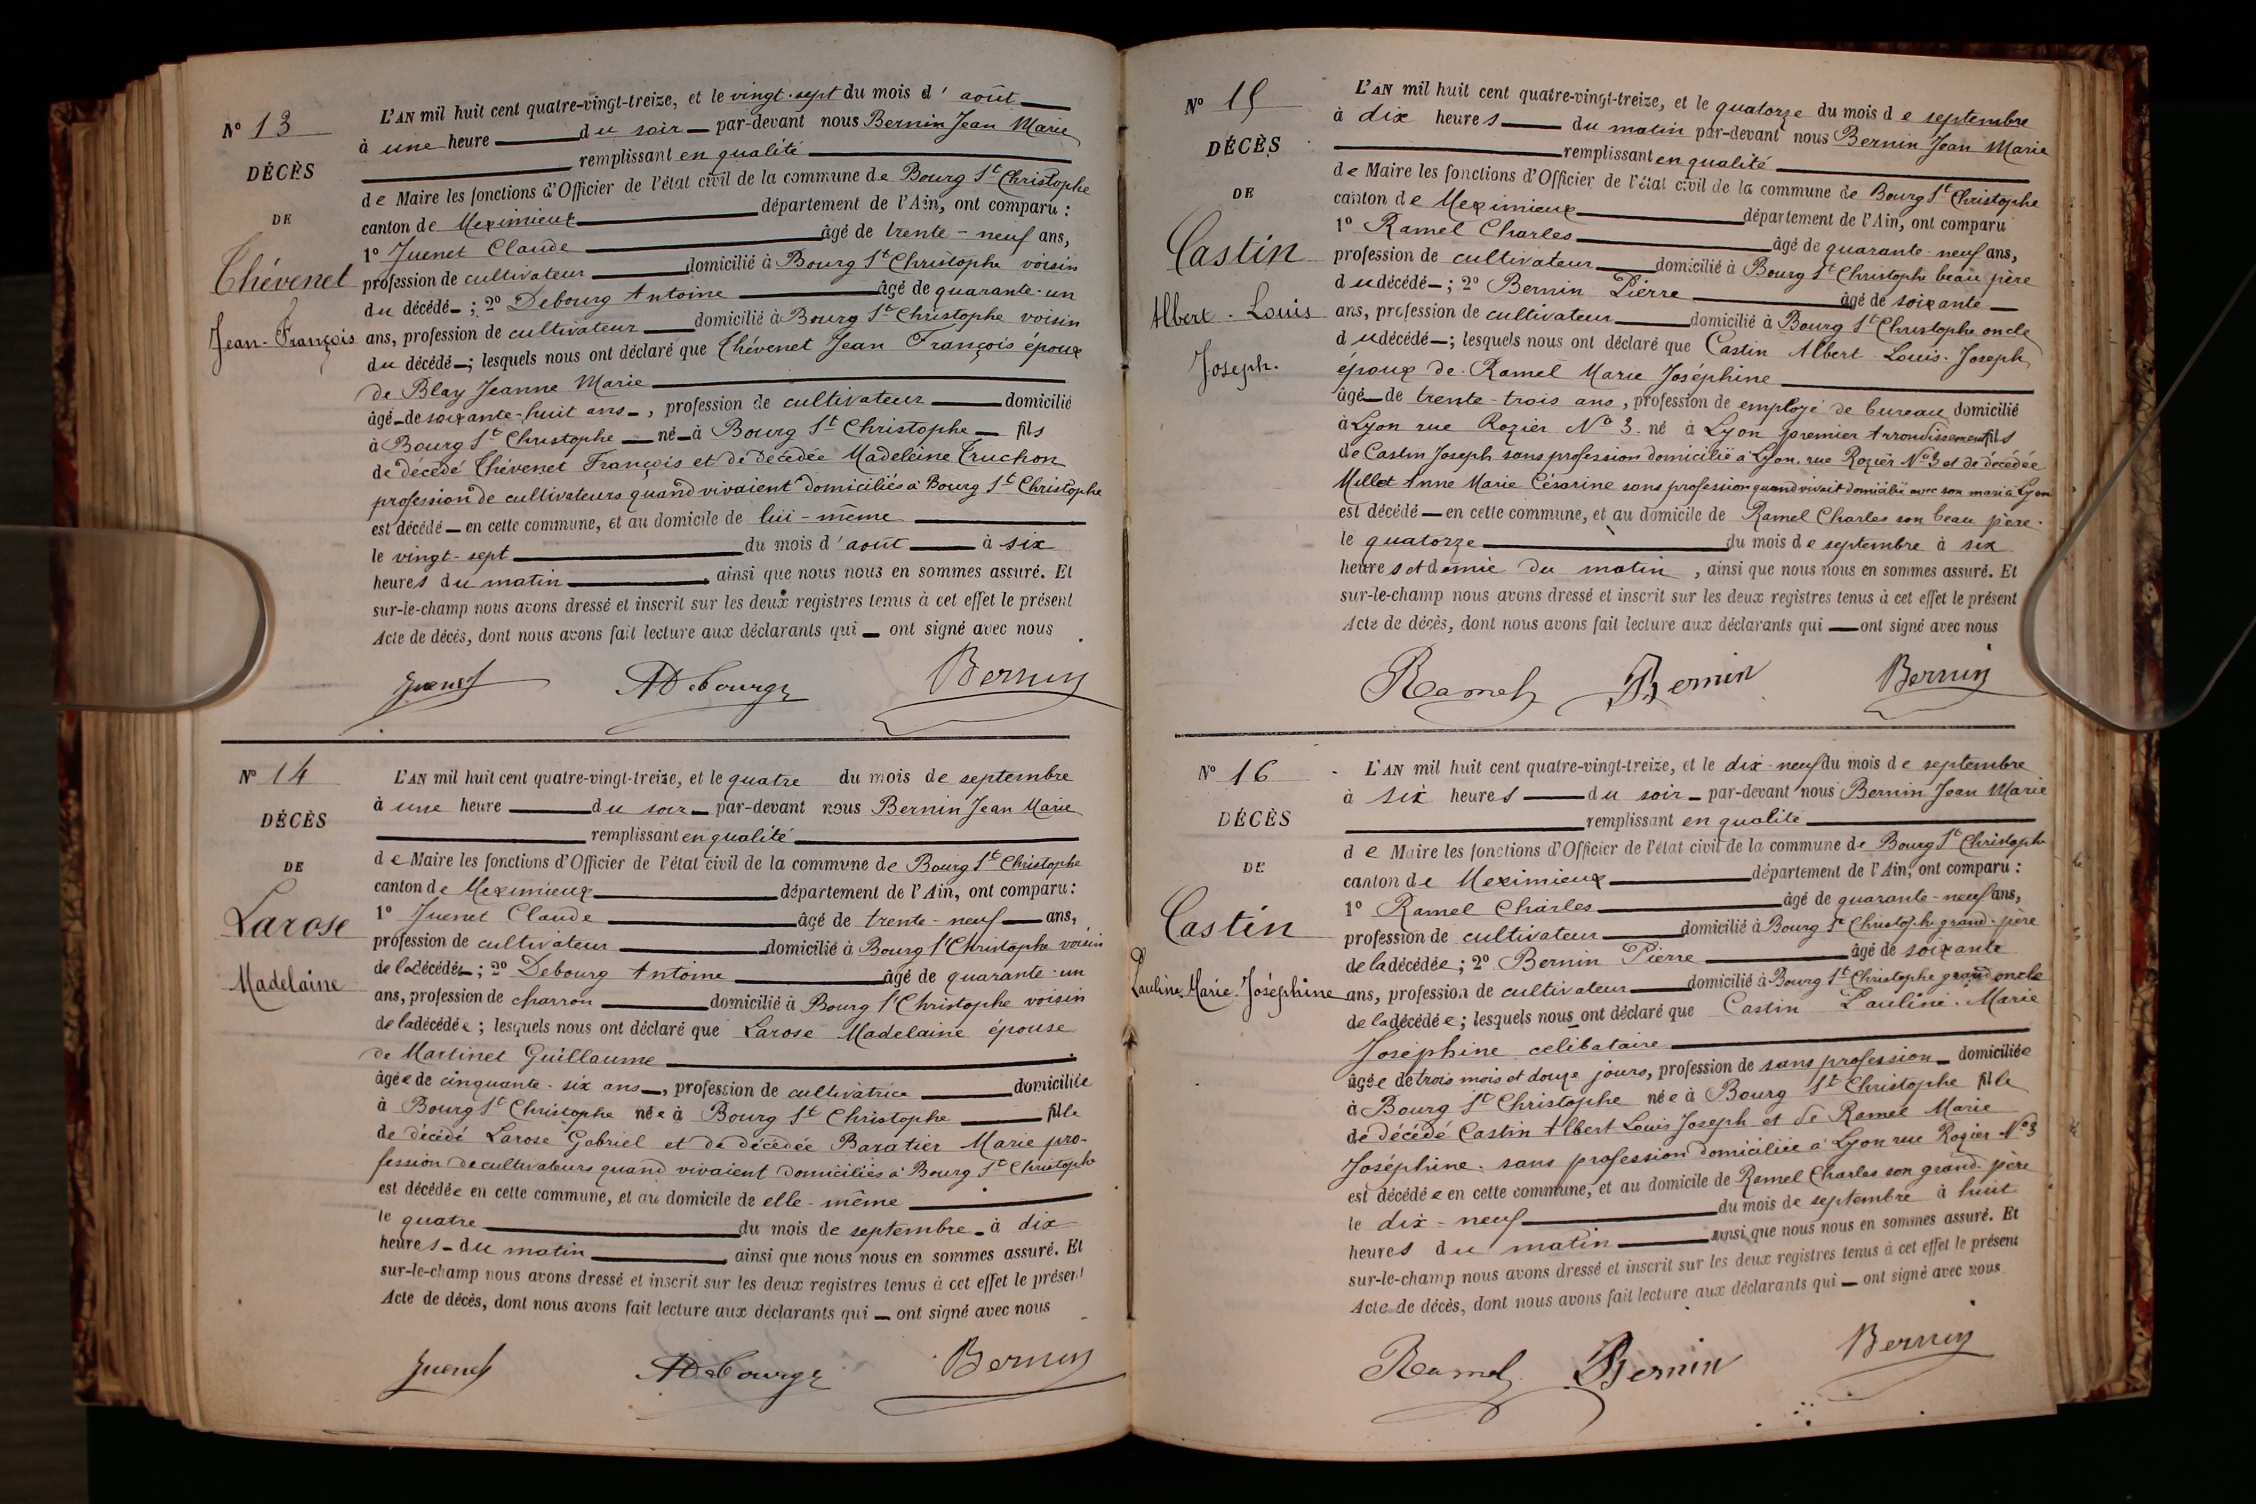 Nº 13
DÉCÈS
DE
Thévenet
Jean-François
L'AN mil huit cent quatre-vingt-treize, et le vingt-sept du mois d'août
à une heure du soir par-devant nous Bernin Jean Marie
remplissant en qualité
de Maire les fonctions d'Officier de l'état civil de la commune de Bourg St Christophe
canton de Meximieux département de l'Ain, ont comparu :
1º Juenet Claude âgé de trente-neuf ans,
profession de cultivateur domicilié à Bourg St Christophe voisin
du décédé ; 2º Debourg Antoine âgé de quarante-un
ans, profession de cultivateur domicilié à Bourg St Christophe voisin
du décédé ; lesquels nous ont déclaré que Thévenet Jean François époux
de Blay Jeanne Marie
âgé de soixante-huit ans, profession de cultivateur domicilié
à Bourg St Christophe né à Bourg St Christophe fils
de décédé Thévenet François et de décédée Madeleine Truchon
profession de cultivateurs quand vivaient domiciliés à Bourg St Christophe
est décédé en cette commune, et au domicile de lui-même
le vingt-sept du mois d'août à six
heures du matin, ainsi que nous nous en sommes assuré. Et
sur-le-champ nous avons dressé et inscrit sur les deux registres tenus à cet effet le présent
Acte de décès, dont nous avons fait lecture aux déclarants qui ont signé avec nous
Juenet ADebourg Bernin
Nº 14
DÉCÈS
DE
Larose
Madelaine
L'AN mil huit cent quatre-vingt-treize, et le quatre du mois de septembre
à une heure du soir par-devant nous Bernin Jean Marie
remplissant en qualité
de Maire les fonctions d'Officier de l'état civil de la commune de Bourg St Christophe
canton de Meximieux département de l'Ain, ont comparu :
1º Juenet Claude âgé de trente-neuf ans,
profession de cultivateur domicilié à Bourg St Christophe voisin
de la décédée ; 2º Debourg Antoine âgé de quarante-un
ans, profession de charron domicilié à Bourg St Christophe voisin
de la décédée ; lesquels nous ont déclaré que Larose Madelaine épouse
de Martinet Guillaume
âgée de cinquante-six ans, profession de cultivatrice domiciliée
à Bourg St Christophe née à Bourg St Christophe fille
de décédé Larose Gabriel et de décédée Baratier Marie pro-
fession de cultivateurs quand vivaient domiciliés à Bourg St Christophe
est décédée en cette commune, et au domicile de elle-même
le quatre du mois de septembre à dix
heures du matin, ainsi que nous nous en sommes assuré. Et
sur-le-champ nous avons dressé et inscrit sur les deux registres tenus à cet effet le présent
Acte de décès, dont nous avons fait lecture aux déclarants qui ont signé avec nous
Juenet ADebourg Bernin
Nº 15
DÉCÈS
DE
Castin
Albert-Louis
Joseph.
L'AN mil huit cent quatre-vingt-treize, et le quatorze du mois de septembre
à dix heures du matin par-devant nous Bernin Jean Marie
remplissant en qualité
de Maire les fonctions d'Officier de l'état civil de la commune de Bourg St Christophe
canton de Meximieux département de l'Ain, ont comparu
1º Ramel Charles âgé de quarante-neuf ans,
profession de cultivateur domicilié à Bourg St Christophe beau père
du décédé ; 2º Bernin Pierre âgé de soixante
ans, profession de cultivateur domicilié à Bourg St Christophe oncle
du décédé ; lesquels nous ont déclaré que Castin Albert Louis Joseph
époux de Ramel Marie Joséphine
âgé de trente-trois ans, profession de employé de bureau domicilié
à Lyon rue Rozier Nº 3 né à Lyon premier Arrondissement fils
de Castin Joseph sans profession domicilié à Lyon, rue Rozier Nº 3 et de décédée
Millet Anne Marie Césarine sans profession quand vivait domiciliée avec son mari à Lyon
est décédé en cette commune, et au domicile de Ramel Charles son beau père.
le quatorze du mois de septembre à six
heures et demie du matin, ainsi que nous nous en sommes assuré. Et
sur-le-champ nous avons dressé et inscrit sur les deux registres tenus à cet effet le présent
Acte de décès, dont nous avons fait lecture aux déclarants qui ont signé avec nous
Ramel Bernin Bernin
Nº 16
DÉCÈS
DE
Castin
Pauline-Marie-Joséphine
L'AN mil huit cent quatre-vingt-treize, et le dix-neuf du mois de septembre
à six heures du soir par-devant nous Bernin Jean Marie
remplissant en qualité
de Maire les fonctions d'Officier de l'état civil de la commune de Bourg St Christophe
canton de Meximieux département de l'Ain, ont comparu :
1º Ramel Charles âgé de quarante-neuf ans,
profession de cultivateur domicilié à Bourg St Christophe grand-père
de la décédée ; 2º Bernin Pierre âgé de soixante
ans, profession de cultivateur domicilié à Bourg St Christophe grand oncle
de la décédée ; lesquels nous ont déclaré que Castin Pauline-Marie
Joséphine célibataire
âgée de trois mois et douze jours, profession de sans profession domiciliée
à Bourg St Christophe née à Bourg St Christophe fille
de décédé Castin Albert Louis Joseph et de Ramel Marie
Joséphine sans profession domiciliée à Lyon rue Rozier Nº 3
est décédée en cette commune, et au domicile de Ramel Charles son grand-père
le dix-neuf du mois de septembre à huit
heures du matin ainsi que nous nous en sommes assuré. Et
sur-le-champ nous avons dressé et inscrit sur les deux registres tenus à cet effet le présent
Acte de décès, dont nous avons fait lecture aux déclarants qui ont signé avec nous
Ramel Bernin Bernin